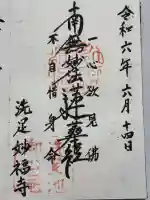 令和六年六月十四日
一心欲見佛
南無妙法蓮華經
不自惜身命
洗足妙福寺